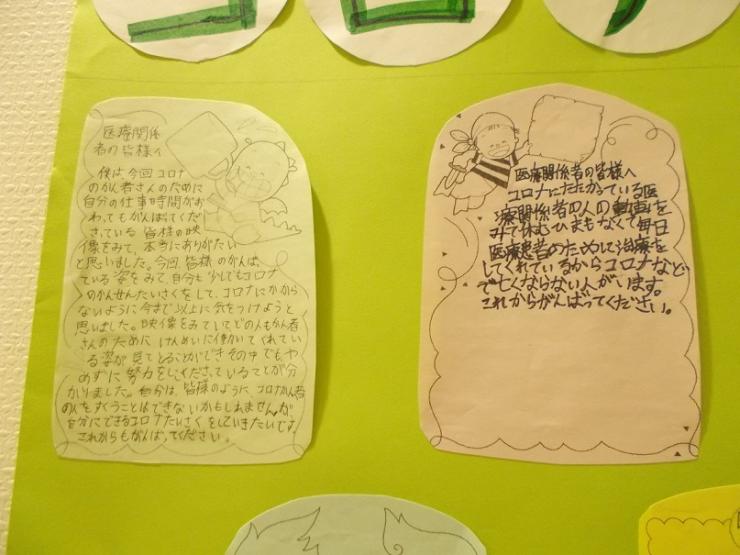 医療関係
者の皆様へ
僕は、今回コロナ
のかん者さんのために
自分の仕事時間がお
わってもがんばってくだ
さっている 皆様の映
像をみて、本当にありがたい
と思いました。今回、皆様のがんばっ
ている姿をみて、自分も少しでもコロナ
のかんせんたいさくをして、コロナにかから
ないように今まで以上に気をつけようと
思いました。映像をみていてどの人もかん者
さんのために けんめいに働いてくれてい
る姿が見てとることができその中でもや
めずに努力をしてくださっていることが分
かりました。自分は、皆様のように コロナかん者
の人をすくうことはできないかもしれませんが
自分にできるコロナたいさくをしていきたいです。
これからもがんばってください。
医療関係者の皆様へ
コロナにたたかっている医
療関係者の人の動画を
みて休むひまもなくて毎日
医療患者のために治療を
してくれているからコロナなど
で亡くならない人がいます。
これからがんばってください。